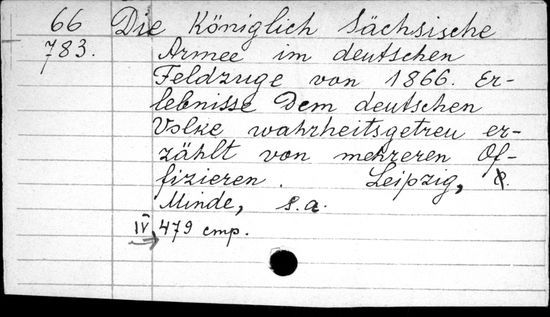 66 Die Königlich Sächsische
783. Armee im deutschen
Feldzuge von 1866. Er-
lebnisse Dem deutschen
Volke wahrheitsgetreu er-
zählt von mehreren Of-
fizieren. Leipzig,
Minde, s.a.
IV, 479 cmp.